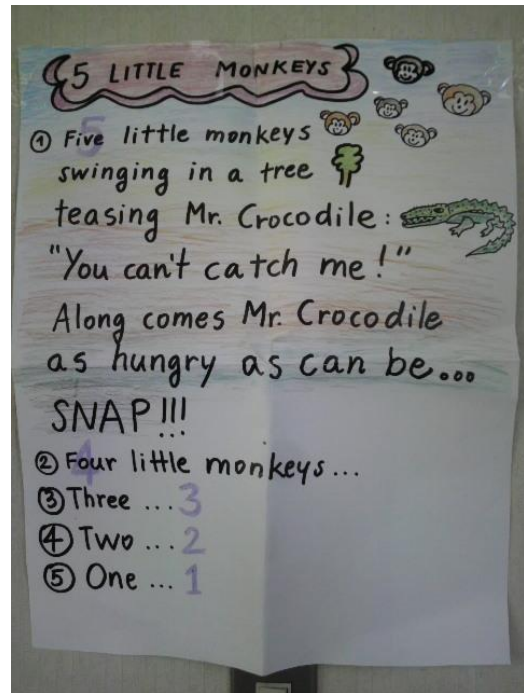 5 LITTLE MONKEYS
① Five little monkeys
5
swinging in a tree
teasing Mr. Crocodile:
"You can't catch me!"
Along comes Mr. Crocodile
as hungry as can be...
SNAP!!!
② Four little monkeys...
4
③ Three ... 3
④ Two ... 2
⑤ One ... 1